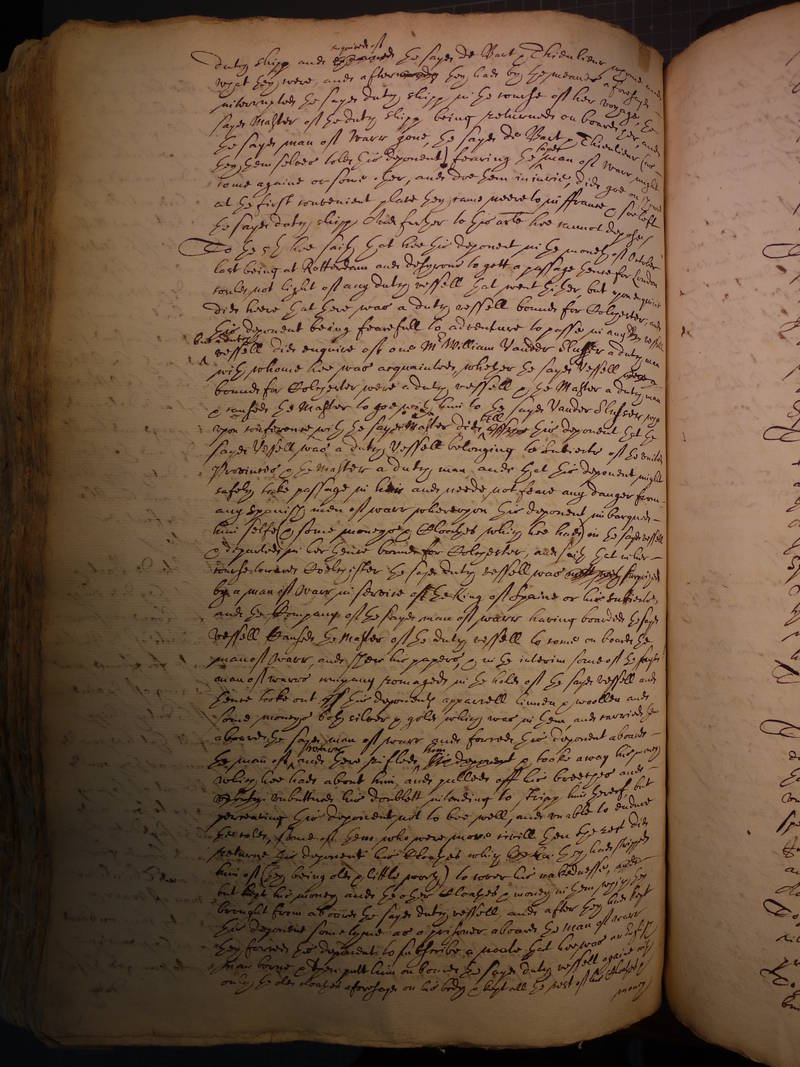 dutch shipp and inquired of the sayd de Bart & Thieulieur
what they were, and after they had by the meanes aforesayd
interrupted the sayd dutch shipp in the course of her voyage, the
sayd Master of the dutch shipp being returned on board her, and
the sayd man of Warr gone, the sayd de Bart & Thieulieur (as
they themselves told this deponent) fearing the sayd man of Warr might
come againe or some other, and doe them iniurie, did goe on
at the first convenient place they came neere to in ffrance, & soe left
the sayd dutch shipp And further to this arle hee cannot depose/
To the 5th hee saith that hee this deponent in the moneth of October
last being at Rotterdam and desyrous to gett a passage thence for London
could not light of any dutch vessell that went thither, but upon enquirie
did heere that there was a dutch vessell bound for Colchester, and
this deponent being fearefull to adventure to passe in any but a dutch
vessell did enquire of one Mr William Vander Slusser a dutch man
with whome hee was acquainted, whether the sayd vessell
bound for Colchester were a dutch vessell & the Master a dutch man
& caused the Master to goe with him to the sayd Vander Slusser, who
upon conference with the sayd Master did tell this deponent that the
sayd vessell was a dutch vessell belonging to subiects of the united
Provinces & the Master a dutch man and that this deponent might
safely take passage in her and neede not feare any danger from
any Spanish men of warr whereupon this deponent imbarqued
him selfe (& some moneyes & cloathes which hee had) on the sayd vessell
& departed in her thence bound for Colchester, and saith that in her
course towards Colchester the sayd dutch vessell was surprized
by a man of Warr in service of the King of Spaine or his subiects,
and the Company of the sayd man of warr having boarded the sayd
vessell Caused the Master of the dutch vessell to come on board the
man of Warr, and shew his papers, & in the interim some of the sayd
man of warrs company romaged in the hold of the sayd vessell and
thence tooke out this deponents apparrell linnen & woollen and
some moneys both silver & gold which was in them and carried them
aboard the sayd man of warr and forced this deponent aboard
the man of warr and there rifled him & tooke away his money
which hee had about him, and pulled off his breeches and
unbuttned his doublett intending to stripp him thereof but
perceaving this deponent not to bee well, and unable to endure
the cold, some of them who were more civill then the rest did
returne this deponent his Cloathes which they had stripped
him of (they being old & little worth) to cover his nakednesse, and
but kept his money and the other cloathes & money in them which they
brought from aboard the sayd dutch vessell, and after they had kept
this deponent some tyme as a prisoner aboard the man of warr
they forced this deponent to subscribe a noate that hee was an
man borne & then putt him on board the sayd dutch vessell againe with
only the old cloathes aforesayd on his body & kept all the rest of his cloathes &
money